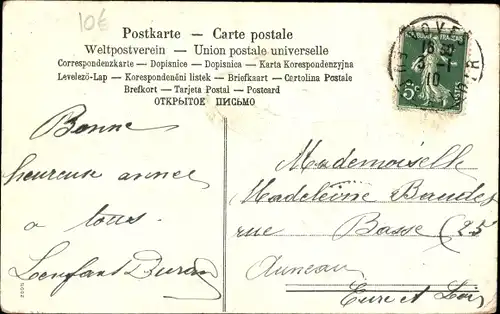 10€
Postkarte - Carte postale
Weltpostverein - Union postale universelle
Correspondenzkarte - Dopisnice - Dopisnica - Karta Korespondenzyjna
Levelező-Lap - Korespondenční listek - Briefkaart - Certolina Postale
Brefkort - Tarjeta Postal - Postcard
ОТКРЫТОЕ ПИСЬМО
VOVES
10
5c
Bonne
heureuse année
a tous.
Lenfant Duran
Mademoiselle
Madeleine Baudet
rue Basse (25
Auneau
Eure et Loir